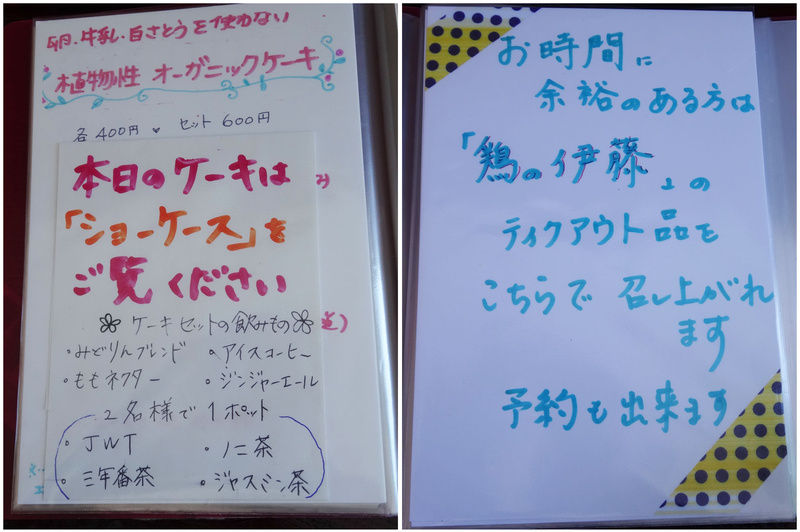 卵・牛乳・白さとうを使わない
植物性 オーガニックケーキ
各400円 セット 600円
本日のケーキは
「ショーケース」を
ご覧ください
ケーキセットの飲みもの
・みどりんブレンド ・アイスコーヒー
・ももネクター ・ジンジャーエール
2名様で1ポット
・JWT ・ノニ茶
・三年番茶 ・ジャスミン茶
お時間に
余裕のある方は
「鶏の伊藤」の
ティクアウト品を
こちらで 召し上がれ
ます
予約も出来ます